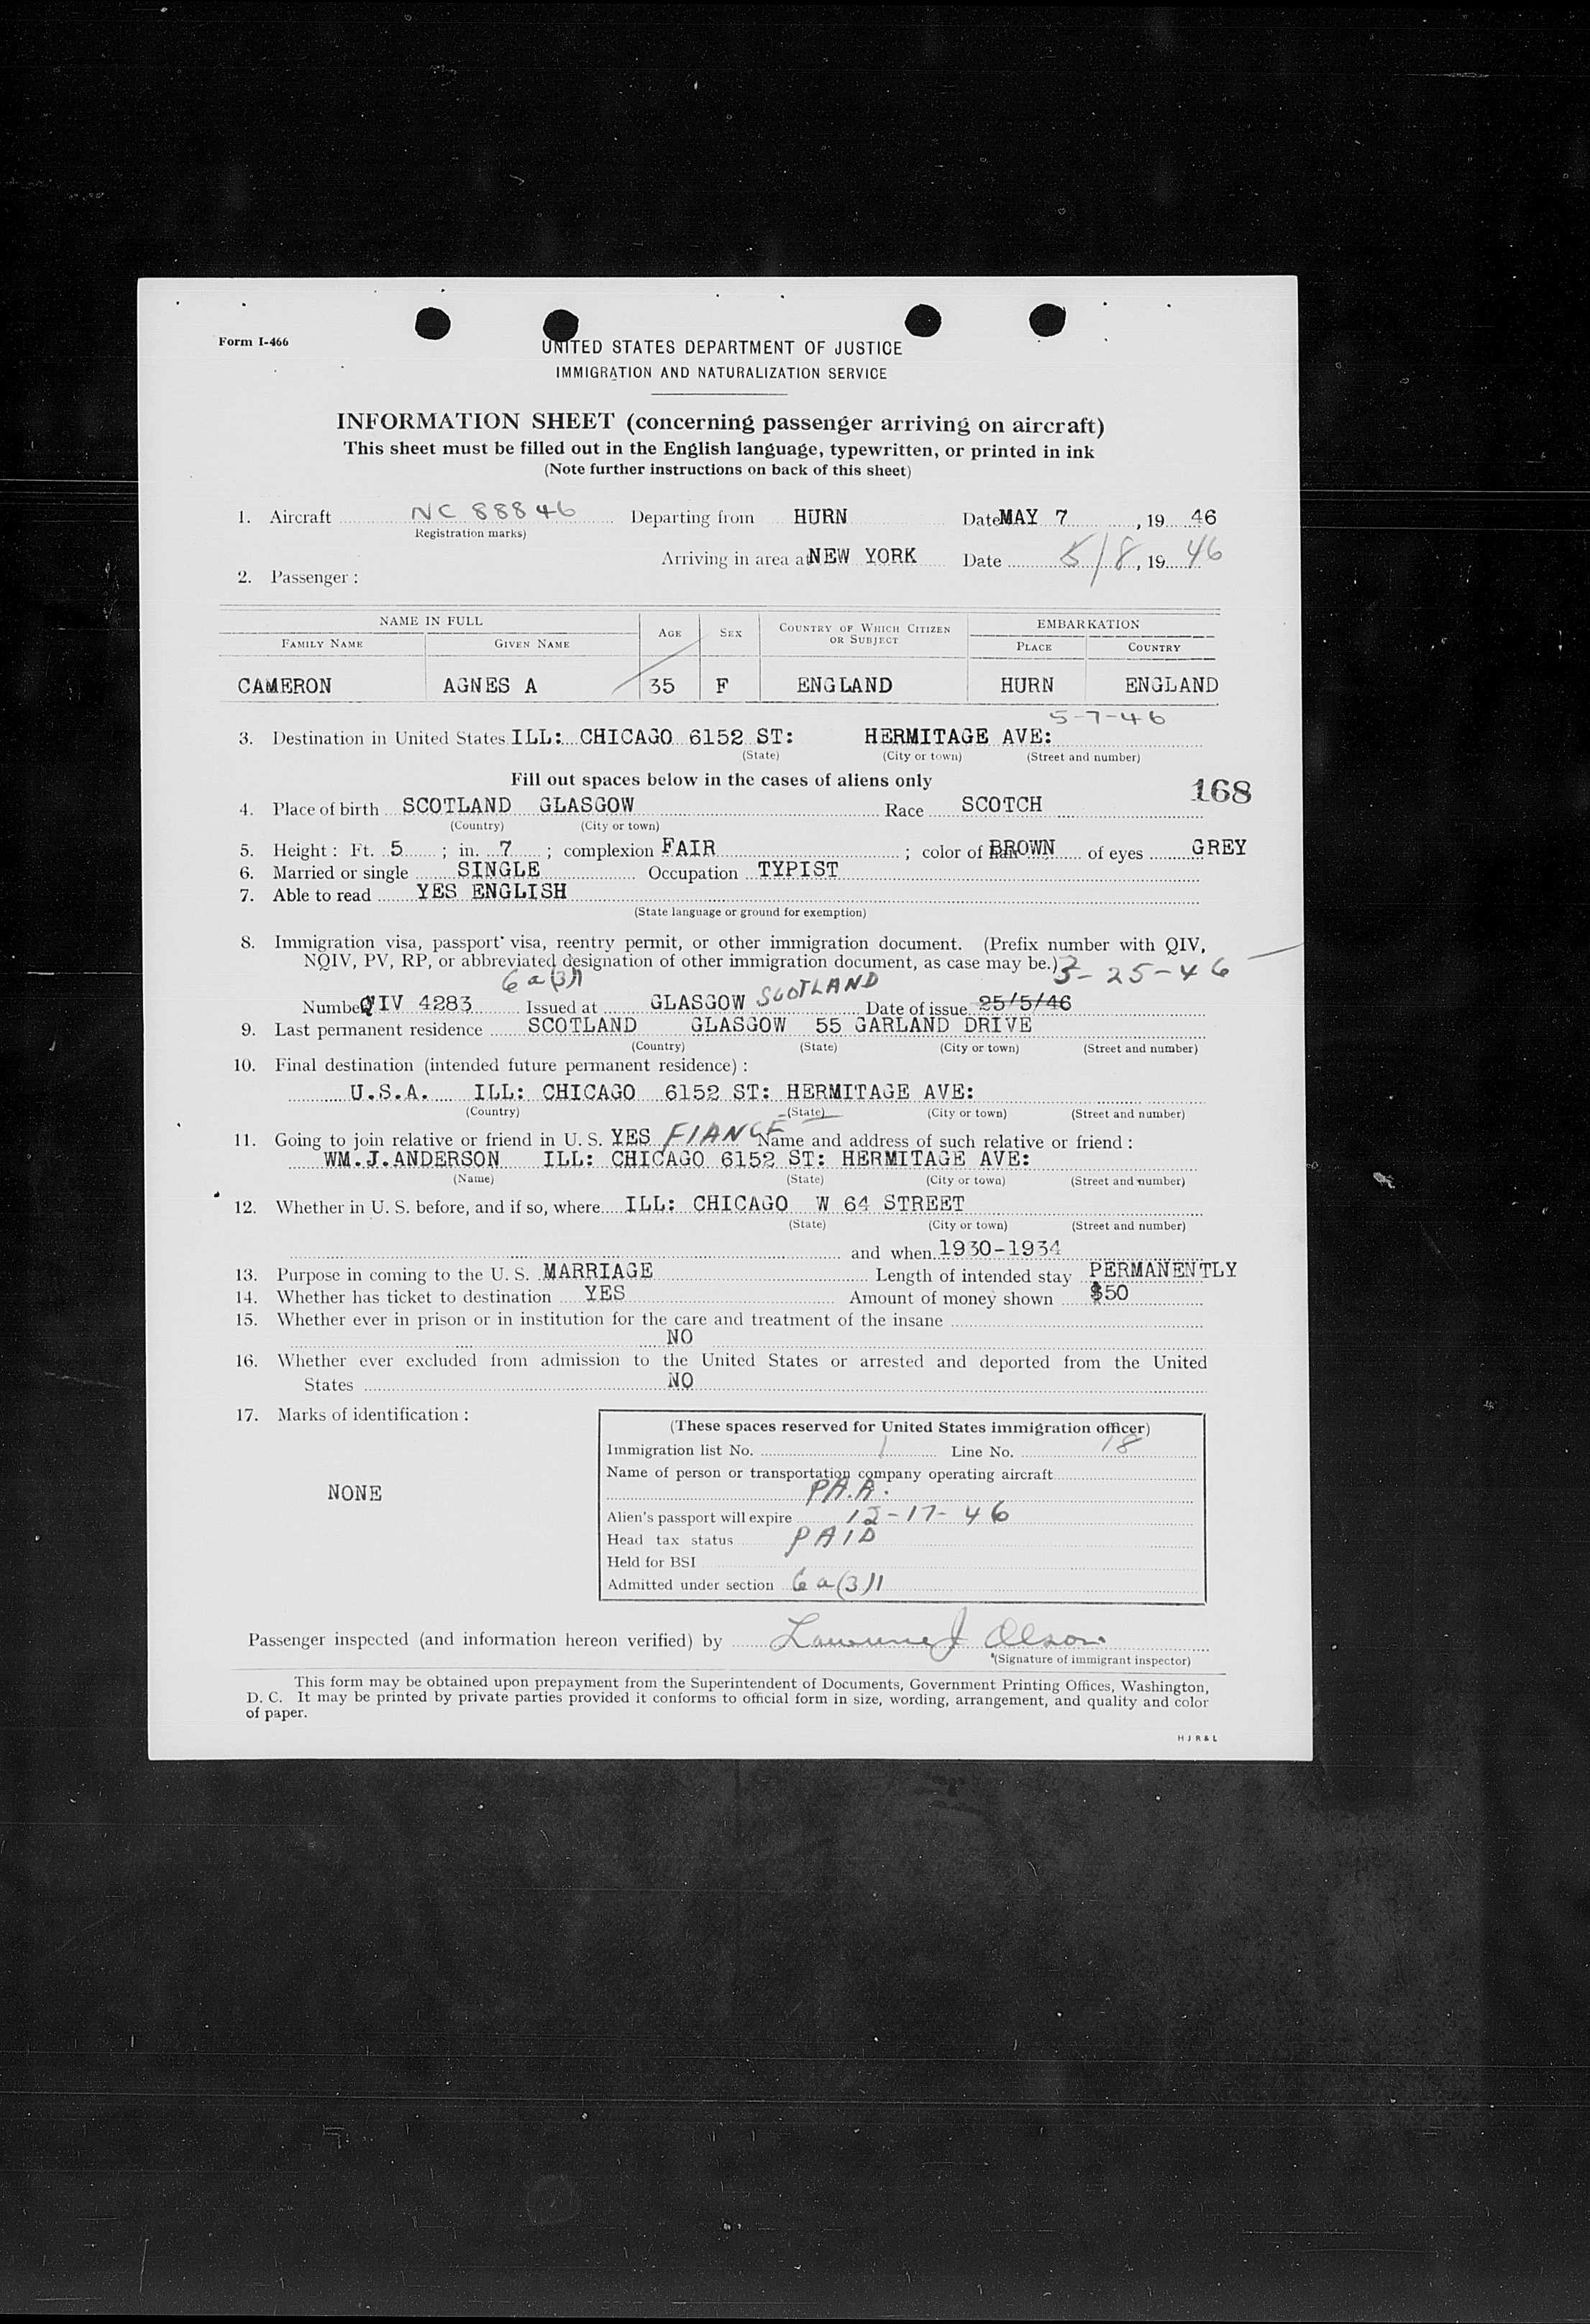 Form I-466
UNITED STATES DEPARTMENT OF JUSTICE
IMMIGRATION AND NATURALIZATION SERVICE
INFORMATION SHEET (concerning passenger arriving on aircraft)
This sheet must be filled out in the English language, typewritten, or printed in ink
(Note further instructions on back of this sheet)
1. Aircraft NC 88846 Departing from HURN Date MAY 7, 19 46
Registration marks)
Arriving in area at NEW YORK Date 5/8, 19 46
2. Passenger :
NAME IN FULL AGE SEX COUNTRY OF WHICH CITIZEN OR SUBJECT EMBARKATION
FAMILY NAME GIVEN NAME PLACE COUNTRY
CAMERON AGNES A 35 F ENGLAND HURN ENGLAND
5-7-46
3. Destination in United States ILL: CHICAGO 6152 ST: HERMITAGE AVE:
(State) (City or town) (Street and number)
Fill out spaces below in the cases of aliens only
168
4. Place of birth SCOTLAND GLASGOW Race SCOTCH
(Country) (City or town)
5. Height : Ft. 5 ; in. 7 ; complexion FAIR ; color of hair BROWN of eyes GREY
6. Married or single SINGLE Occupation TYPIST
7. Able to read YES ENGLISH
(State language or ground for exemption)
8. Immigration visa, passport visa, reentry permit, or other immigration document. (Prefix number with QIV,
NQIV, PV, RP, or abbreviated designation of other immigration document, as case may be.) 3-25-46
6a(3)1
Number QIV 4283 Issued at GLASGOW SCOTLAND Date of issue 25/5/46
9. Last permanent residence SCOTLAND GLASGOW 55 GARLAND DRIVE
(Country) (State) (City or town) (Street and number)
10. Final destination (intended future permanent residence) :
U.S.A. ILL: CHICAGO 6152 ST: HERMITAGE AVE:
(Country) (State) (City or town) (Street and number)
11. Going to join relative or friend in U. S. YES FIANCE Name and address of such relative or friend :
WM.J.ANDERSON ILL: CHICAGO 6152 ST: HERMITAGE AVE:
(Name) (State) (City or town) (Street and number)
12. Whether in U. S. before, and if so, where ILL: CHICAGO W 64 STREET
(State) (City or town) (Street and number)
and when 1930-1934
13. Purpose in coming to the U. S. MARRIAGE Length of intended stay PERMANENTLY
14. Whether has ticket to destination YES Amount of money shown $50
15. Whether ever in prison or in institution for the care and treatment of the insane
NO
16. Whether ever excluded from admission to the United States or arrested and deported from the United
States NO
17. Marks of identification :
NONE
(These spaces reserved for United States immigration officer)
Immigration list No. 1 Line No. 18
Name of person or transportation company operating aircraft
P.A.A.
Alien's passport will expire 12-17-46
Head tax status PAID
Held for BSI
Admitted under section 6a(3)1
Passenger inspected (and information hereon verified) by Lawrence J Olson
(Signature of immigrant inspector)
This form may be obtained upon prepayment from the Superintendent of Documents, Government Printing Offices, Washington,
D. C. It may be printed by private parties provided it conforms to official form in size, wording, arrangement, and quality and color
of paper.
H J R & L